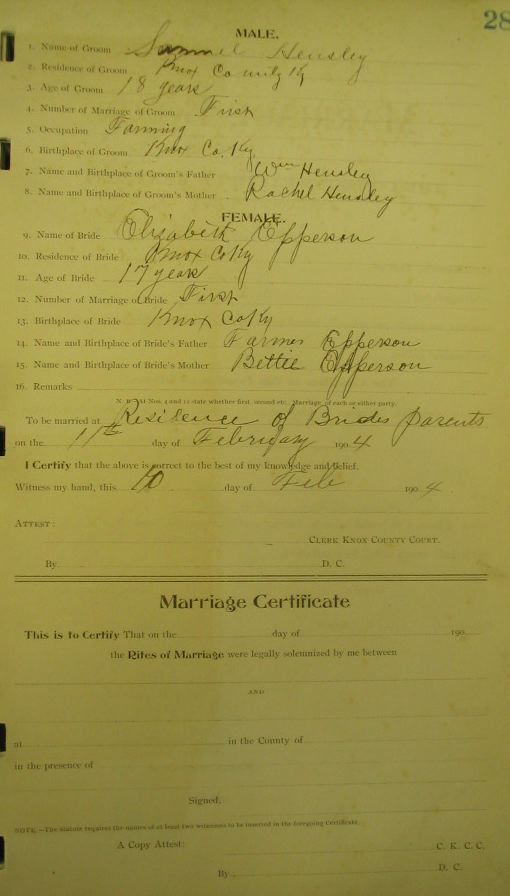 28
MALE.
1. Name of Groom Samuel Hensley
2. Residence of Groom Knox County Ky
3. Age of Groom 18 years
4. Number of Marriage of Groom First
5. Occupation Farming
6. Birthplace of Groom Knox Co. Ky.
7. Name and Birthplace of Groom's Father Wm Hensley
8. Name and Birthplace of Groom's Mother Rachel Hensley
FEMALE.
9. Name of Bride Elizabeth Epperson
10. Residence of Bride Knox Co Ky
11. Age of Bride 17 years
12. Number of Marriage of Bride First
13. Birthplace of Bride Knox Co Ky
14. Name and Birthplace of Bride's Father Farmer Epperson
15. Name and Birthplace of Bride's Mother Bettie Epperson
16. Remarks
N. B. At Nos. 4 and 12 state whether first, second etc. Marriage of each or either party.
To be married at Residence of Brides parents
on the 11th day of February 1904
I Certify that the above is correct to the best of my knowledge and belief.
Witness my hand, this 10 day of Feb 1904
ATTEST:
CLERK KNOX COUNTY COURT.
By D. C.
Marriage Certificate
This is to Certify That on the day of 190
the Rites of Marriage were legally solemnized by me between
AND
at in the County of
in the presence of
Signed,
NOTE.—The Statute requires the names of at least two witnesses to be inserted in the foregoing Certificate.
A Copy Attest: C. K. C. C.
By D. C.